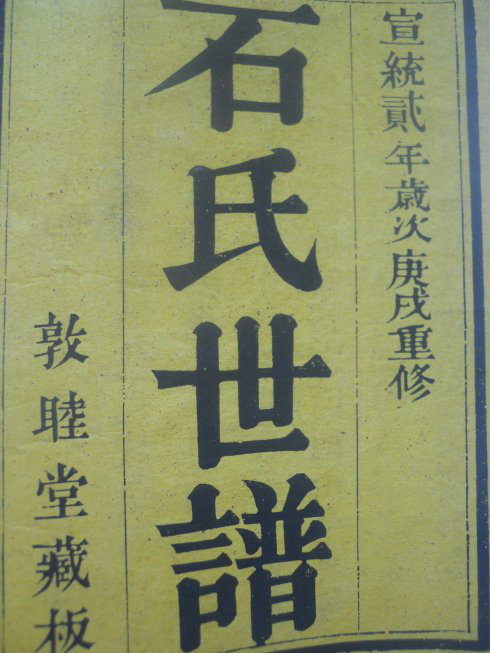 宣統貳年歲次庚戌重修
石氏世譜
敦睦堂藏板